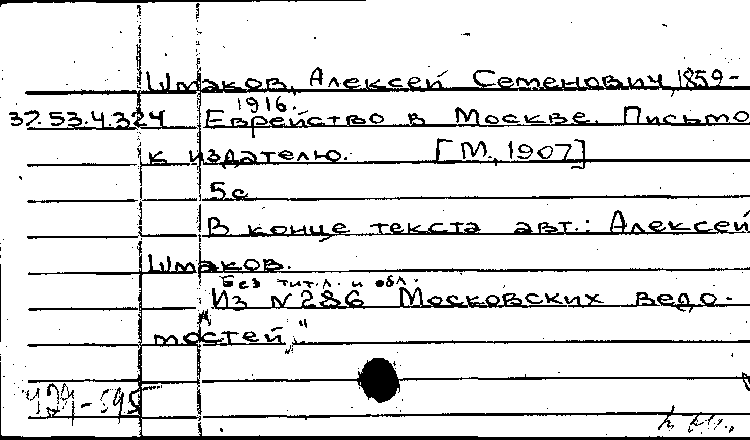 Шмаков, Алексей Семенович, 1859-
1916.
37.53.4.324 Еврейство в Москве. Письмо
к издателю. [М., 1907]
5с
В конце текста авт.: Алексей
Шмаков.
Без тит. л. и обл.
Из N 286 „Московских ведо-
мостей"
429-595